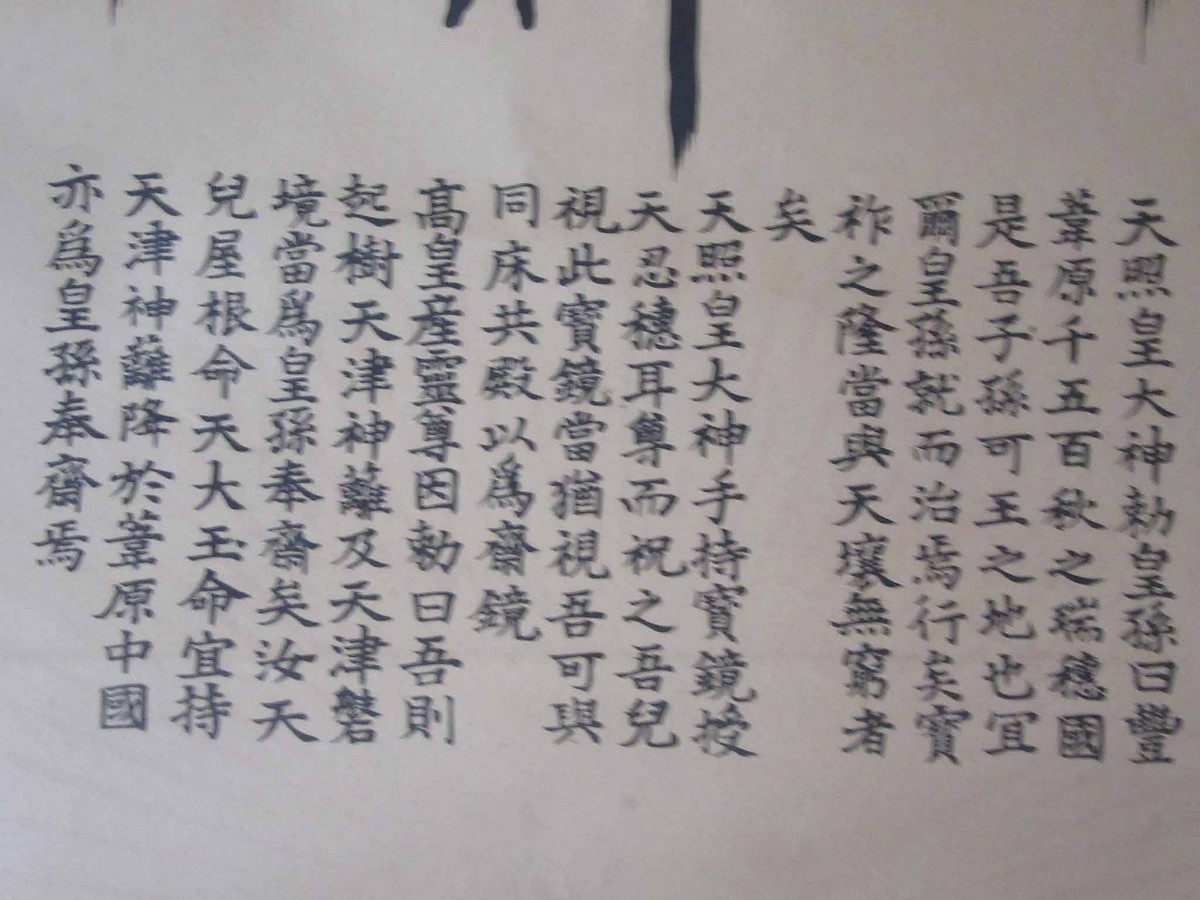 天照皇大神勅皇孫曰豐
葦原千五百秋之瑞穗國
是吾子孫可王之地也冝
爾皇孫就而治焉行矣寶
祚之隆當與天壤無窮者
矣
天照皇大神手持寶鏡授
天忍穗耳尊而祝之吾兒
視此寶鏡當猶視吾可與
同床共殿以爲齋鏡
高皇產靈尊因勅曰吾則
起樹天津神蘺及天津磐
境當爲皇孫奉齋矣汝天
兒屋根命天大玉命宜持
天津神蘺降於葦原中國
亦爲皇孫奉齋焉